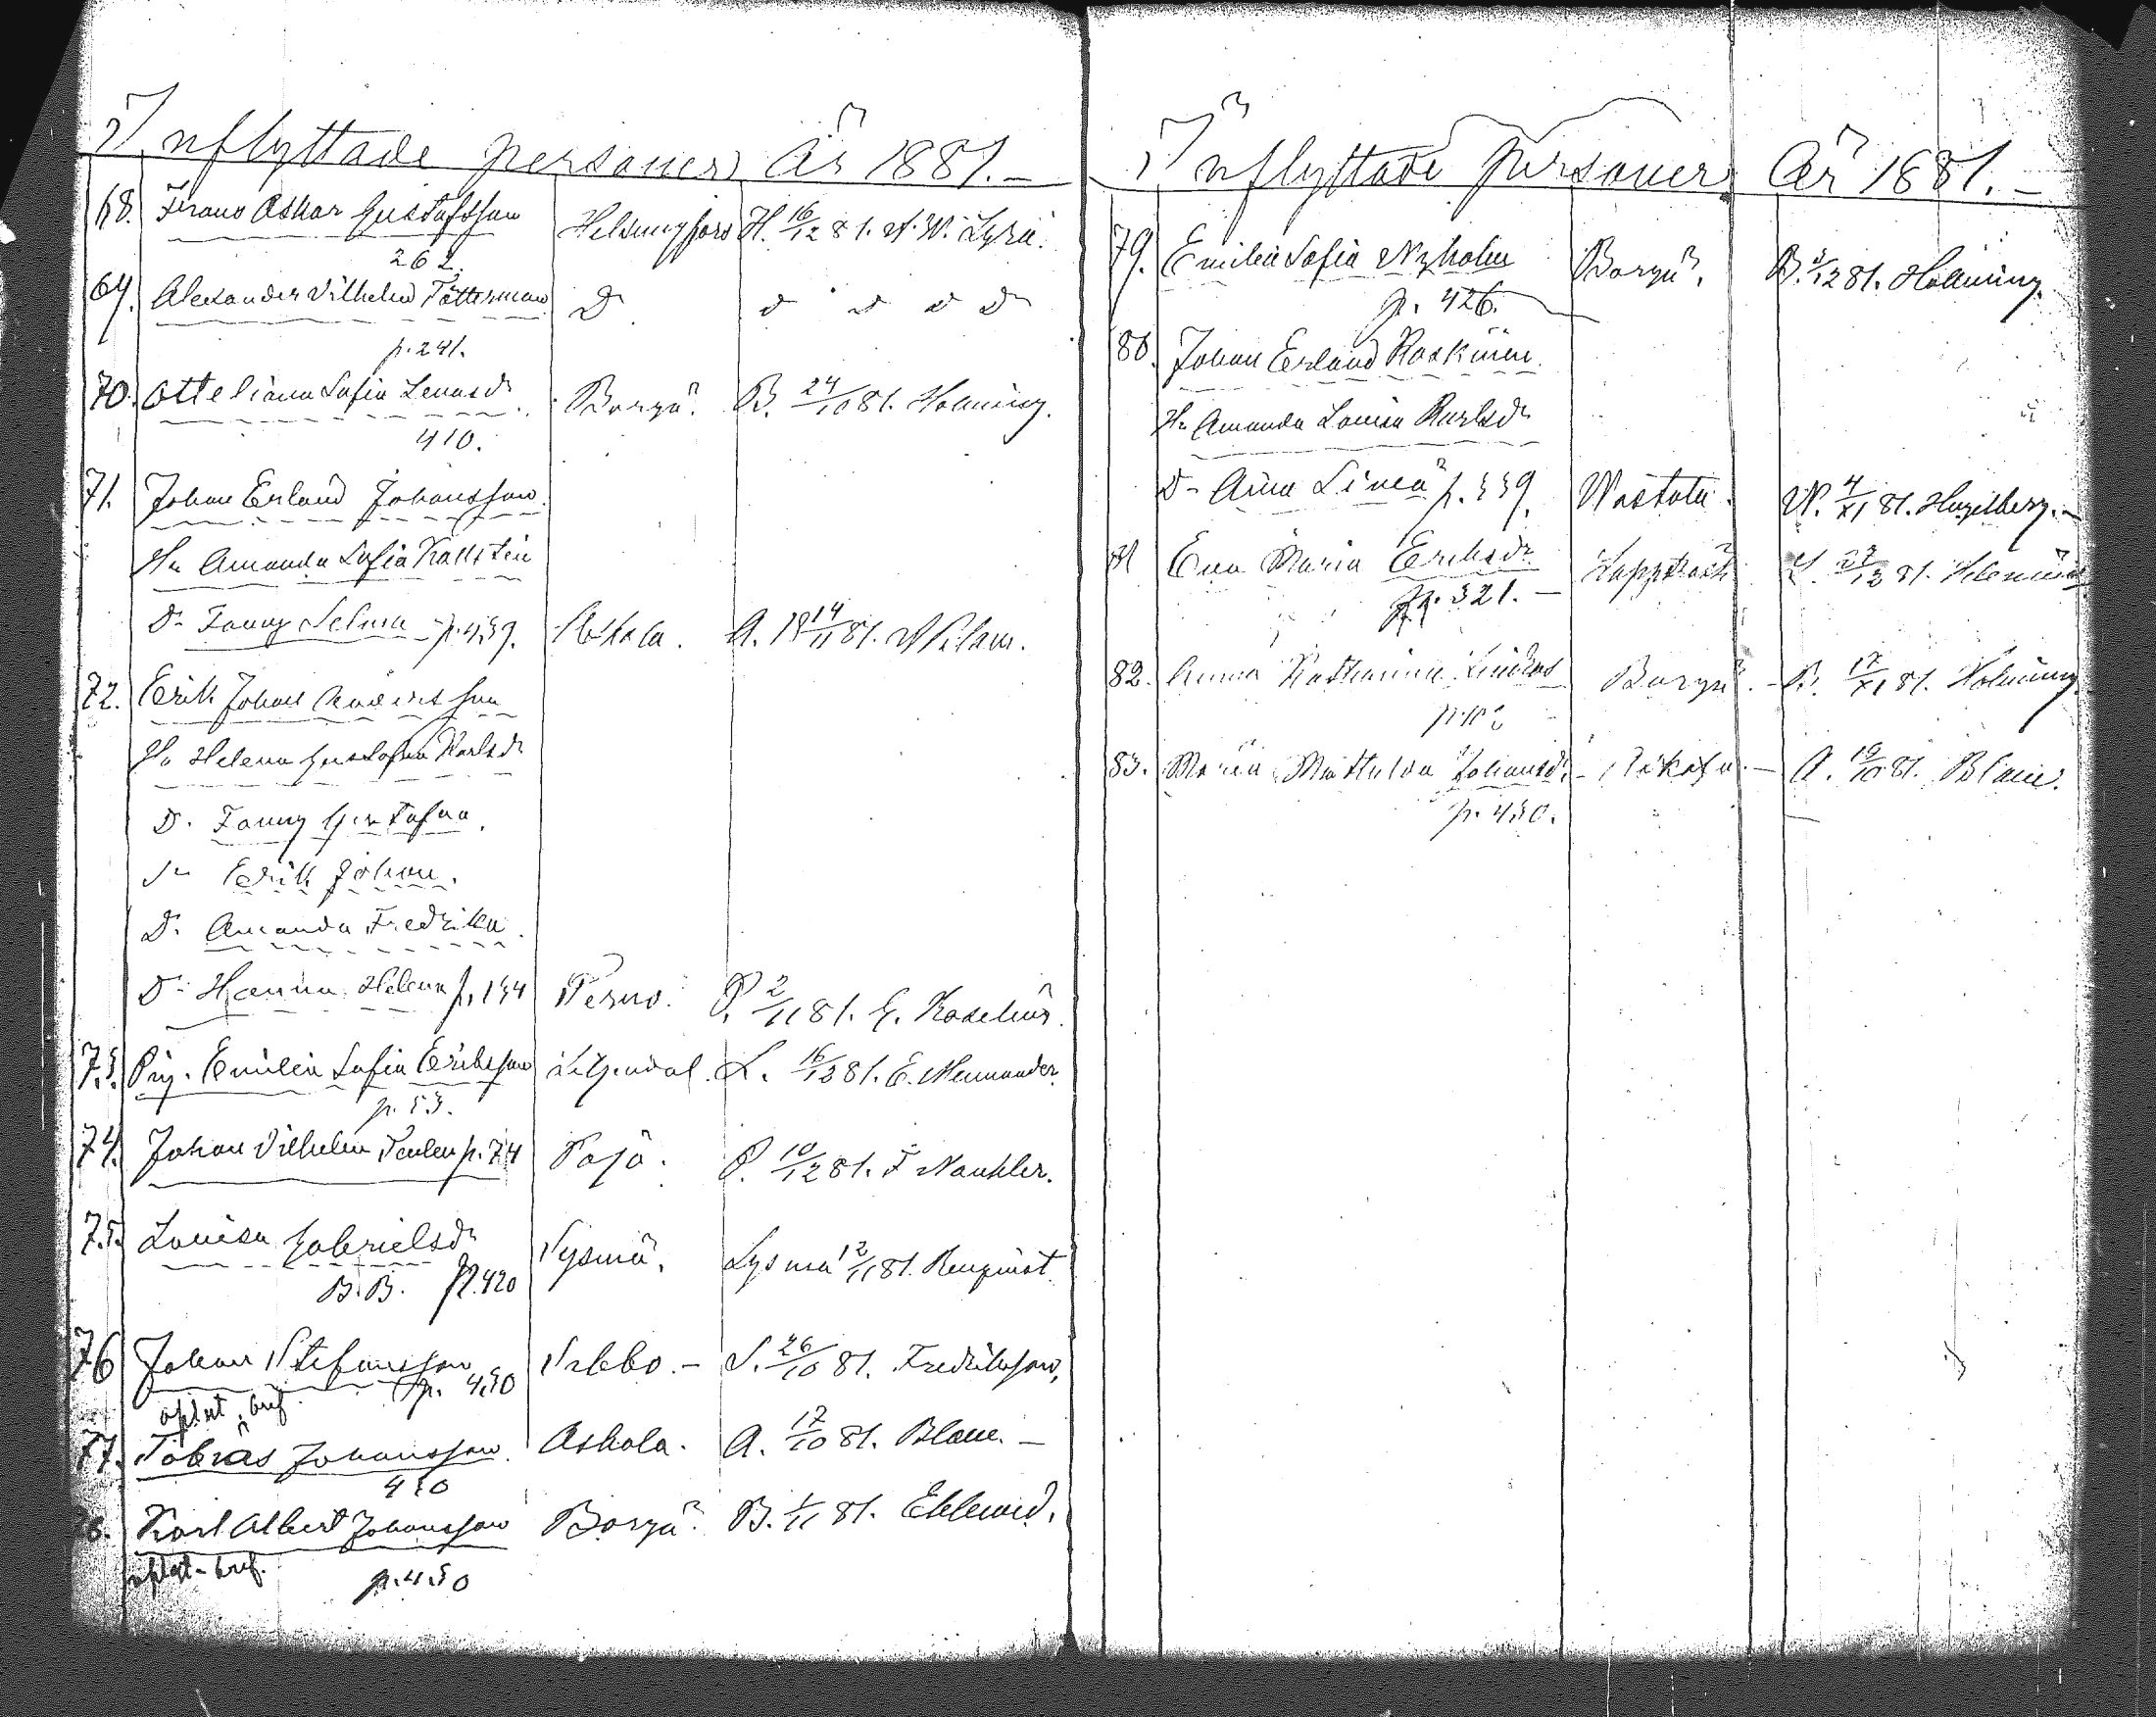 Inflyttade personer År 1881.-
68. Frans Oskar Gustafsson Helsingfors H. 16/12 81. A. W. Lyra.
262.
69. Alexander Vilhelm Tötterman D
p. 241.
70. Otteliana Sofia Lenasdr Borgå. B. 24/10 81. Holming.
410.
71. Johan Erland Johansson
Hu Amanda Sofia Kallstén
Dr Fanny Selma p. 439. Askola. A. 14/11 81.
72. Erik Johan Andersson
Hu Helena Gustafva Karlsdr
Dr Fanny Gustafva.
Sn Erik Johan.
Dr Amanda Fredrika.
Dr Hanna Helena p. 134 Perno. P. 2/11 81. G. Roselius.
73. Pig. Emilia Sofia Eriksson Liljendal. L. 16/12 81. E. Neumander.
p. 53.
74. Johan Vilhelm p. 74 Pojo. P. 10/12 81. F Naukler.
75. Lovisa Gabrielsdr Sysmä. Sysmä 12/11 81. Renquist
B. B. p. 420
76 Johan Stefansson Sibbo.- S. 26/10 81. Fredriksson,
p. 430
bref.
77. Tobias Johansson. Askola. A. 17/10 81. Blom.-
430
78. Karl Albert Johansson Borgå. B. 1/11 81. Eklund.
bref. p. 430
Inflyttade personer År 1881.-
79. Emilia Sofia Nyholm Borgå. B. 5/12 81. Holming.
p. 426.
80. Johan Erland Koskinen.
Hu Amanda Lovisa Karlsdr
Dr Aina Linea p. 339. Wåstola. W. 4/XI 81. Hagelberg.-
81 Eva Maria Eriksdr Lappträsk L. 27/12 81.
p. 321.-
82. Anna Katharina Lindroos Borgå.- B. 17/XI 81. Holming
83. Maria Mathilda Johansdr- Askola.- A. 19/10 81. Blom.
p. 430.